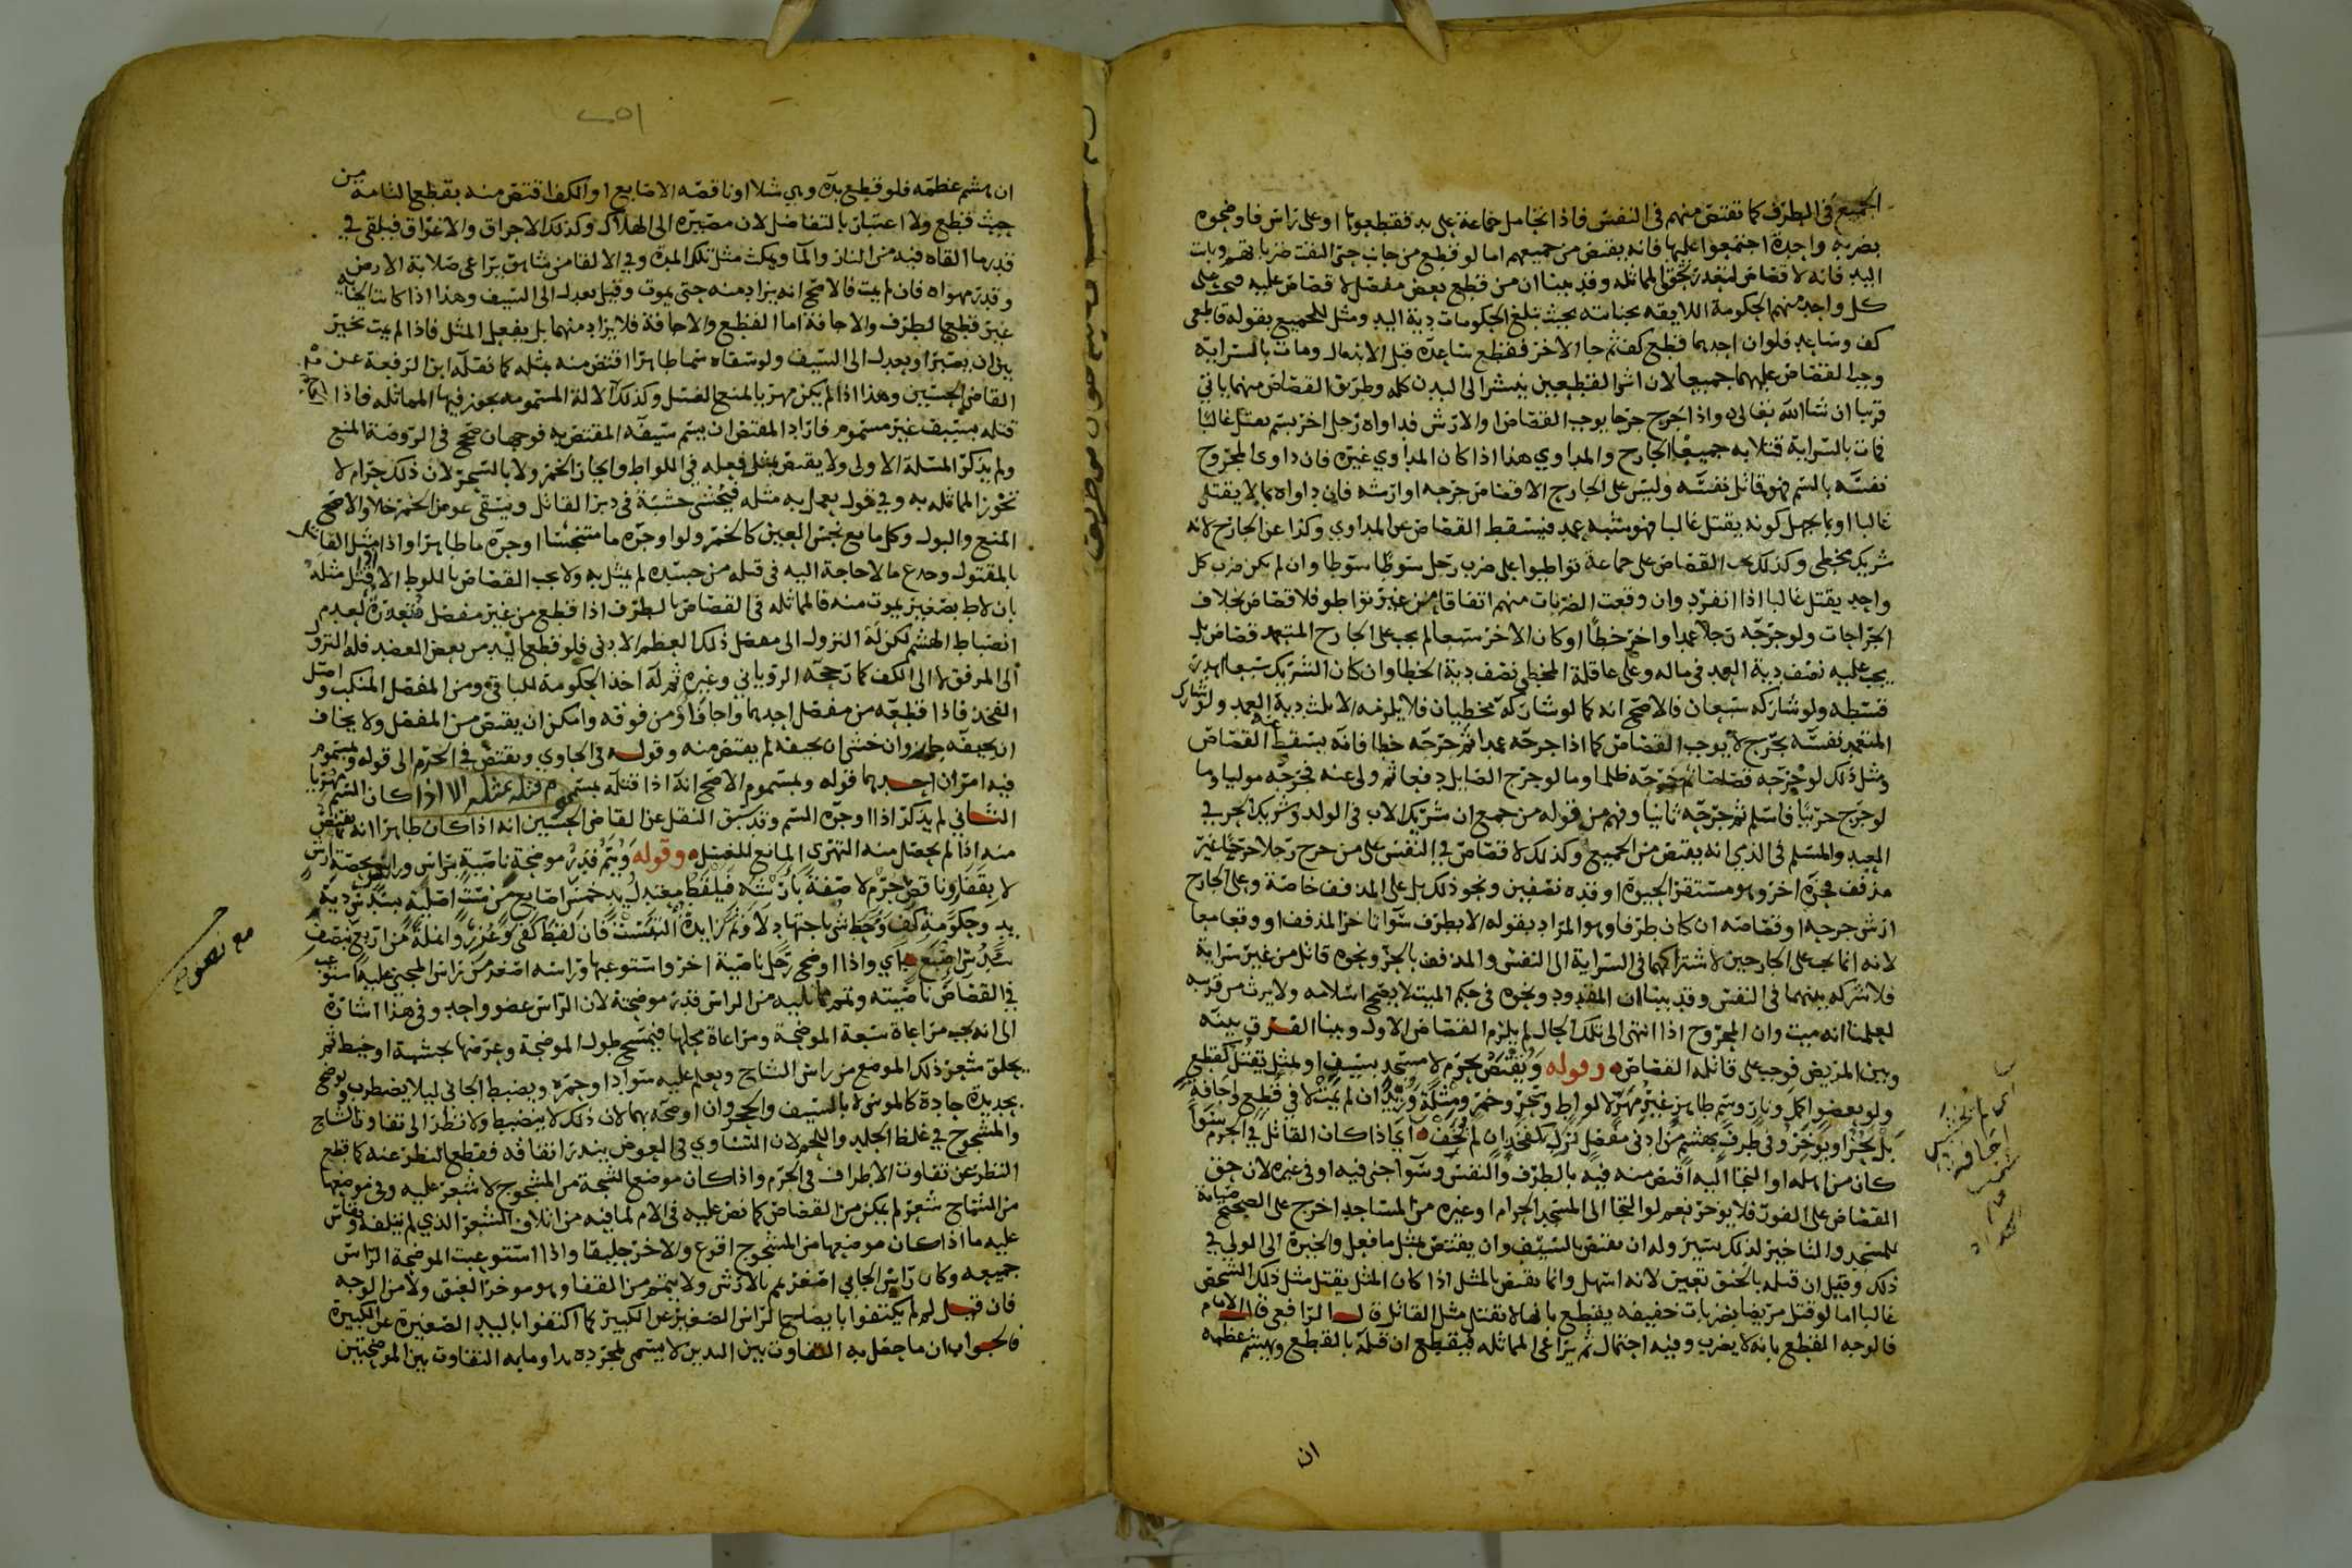 الجميع في الطرف كما تقتص منهم في النفس فاذا تحامل جماعة على يد فقطعوها او على راس فاوضحوه
بضربة واحدة اجتمعوا عليها فانه يقتص من جميعهم اما لو قطع من جانب حتى التقت ضرباتهم وبانت
اليد فانه لا قصاص لتعذر تحقق المماثله وقد بينا ان من قطع بعض مفصل لا قصاص عليه فيجب على
كل واحد منهم الحكومة اللايقه بجنايته بحيث تبلغ الحكومات دية اليد ومثل للجميع بقوله قاطعي
كف وساعد فلو ان احدهما قطع كف ثم جا الاخر فقطع ساعده قبل الاندمال ومات بالسراية
وجب القصاص عليهما جميعا لان اثر القطعين ينتشر الى البدن كله وطريق القصاص منهما ياتي
قريبا ان شا الله تعالى واذا جرح جرحا يوجب القصاص او الارش فداواه رجل اخر بسم يقتل غالبا
فمات بالسراية قتلا به جميعا الجارح والمداوي هذا اذا كان المداوي غيره فان داوى المجروح
نفسه بالسم فهو قاتل نفسه وليس على الجارح الا قصاص جرحه او ارشه فان داواه بما لا يقتل
غالبا او بما يجهل كونه يقتل غالبا فهو شبه عمد فيسقط القصاص عن المداوي وكذا عن الجارح لانه
شريك مخطي وكذلك يجب القصاص على جماعة تواطيوا على ضرب رجل سوطا سوطا وان لم يكن ضرب كل
واحد يقتل غالبا اذا انفرد وان وقعت الضربات منهم اتفاقا من غير تواطو فلا قصاص بخلاف
الجراحات ولو جرحه رجلا عمدا واخر خطأ او كان الاخر سبعا لم يجب على الجارح المتعمد قصاص بل
يجب عليه نصف دية العمد في ماله وعلى عاقلة المخطي نصف دية الخطا وان كان الشريك سبعا اهدر
قسطه ولو شاركه سبعان فالاصح انه كما لو شاركه مخطيان فلا يلزمه الا ثلث دية العمد ولو شارك
المتعمد نفسه بجرح لا يوجب القصاص كما اذا جرحه عمدا ثم جرحه خطا فانه يسقط عنه القصاص
ومثل ذلك لو جرحه قصاصا ثم جرحه ظلما وما لو جرح الصايل دفعا ثم ولى عنه فجرحه موليا وما
لو جرح حربيا فاسلم ثم جرحه ثانيا وفهم من قوله من جمع ان شريك الاب في الولد وشريك الحر في
العبد والمسلم في الذمي انه يقتص من الجميع وكذلك لا قصاص في النفس على من جرح رجلا جرحا غير
مذفف فجزه اخر وهو مستقر الحيوة او قده نصفين ونحو ذلك بل على المذفف خاصة وعلى الجارح
ارش جرحه او قصاصه ان كان طرفا وهو المراد بقوله لا بطرف سوآ تاخر المذفف او وقعا معا
لانه انما يجب على الجارحين لاشتراكهما في السراية الى النفس والمذفف بالحز ونحوه قاتل من غير سراية
فلا شركه بينهما في النفس وقد بينا ان المقدود ونحوه في حكم الميت لا يصح اسلامه ولا يرث من قريبه
لعلمنا انه ميت وان المجروح اذا انتهى الى تلك الحال لم يلزم القصاص الاول وبينا الفرق بينه
وبين المريض فوجب على قاتله القصاص وقوله ويقتص بحرم لا مسجد بسيف او بمثل يقتل كقطع
ولو بعضو اكل ونار وسم طاهر غير مهر لا لواط وسحر وخمر ومثلة وزيد ان لم يمت لا في قطع واجافة
بل يحز او يوخر وفي طرف بهشم من ادنى مفصل نزل كفخذ ان لم تجف اي اذا كان القاتل في الحرم سوا
كان من اهله او التجا اليه اقتص منه فيه بالطرف والنفس وسوآ جنى فيه او في غيره لان حق
القصاص على الفور فلا يوخر نعم لو التجا الى المسجد الحرام او غيره من المساجد اخرج على الصحيح صيانة
للمسجد والتاخير لذلك يسير وله ان يقتص بالسيف وان يقتص بمثل ما فعل والخيرة الى الولي في
ذلك وقيل ان قتله بالخنق تعين لانه اسهل وانما يقتص بالمثل اذا كان المثل يقتل مثل ذلك الشخص
غالبا اما لو قتل مريضا بضربات خفيفه يقطع بانها لا تقتل مثل القاتل قال الرافعي قال الامام
فالوجه القطع بانه لا يضرب وفيه احتمال ثم يراعى المماثله فيقطع ان قتله بالقطع ويهشم عظمه
ان
ان هشم عظمه فلو قطع يده وهي شلا او ناقصه الاصابع او الكف اقتص منه بقطع التامة من
حيث قطع ولا اعتبار بالتفاضل لان مصيره الى الهلاك وكذلك الاحراق والاغراق فيلقى في
قدر ما القاه فيه من النار والمآ ويمكث مثل تلك المدة وفي الالقا من شاهق يراعى صلابة الارض
وقدر مهواه فان لم يمت فالاصح انه يزاد منه حتى يموت وقيل يعدل الى السيف وهذا اذا كانت الجنايه
غير قطع الطرف والاجافة اما القطع والاجافة فلا يزاد منهما بل يفعل المثل فاذا لم يمت تخير
بين ان يصبر او يعدل الى السيف ولو سقاه سما طاهرا اقتص منه بمثله كما نقله ابن الرفعة عن
القاضي الحسين وهذا اذا لم يكن مهر يا يمنع الغسل وكذلك الالة المسمومه يجوز فيها المماثله فاذا
قتله بسيف غير مسموم فاراد المقتص ان يسم سيفه المقتص به فوجهان صحح في الروضة المنع
ولم يذكر المسئلة الاولى ولا يقتص بمثل فعله في اللواط وايجار الخمر ولا بالسحر لان ذلك حرام لا
تجوز المماثله به وفي قول يعمل به مثله فيحشى خشبة في دبر القاتل ويسقى عوض الخمر خلا والاصح
المنع والبول وكل مايع نجس العين كالخمر ولو اوجره ما متنجسا اوجره ما طاهرا واذا مثل القاتل
بالمقتول وجدع ما لا حاجة اليه في قتله من جسده لم يمثل به ولا يجب القصاص باللوط الا اذا قتل مثله
بان لاط بصغير يموت منه فالمماثله في القصاص بالطرف اذا قطع من غير مفصل متعذرة لعدم
انضباط الهشم لكن له النزول الى مفصل ذلك العظم الادنى فلو قطع اليد من بعض العضد فله النزول
الى المرفق لا الى الكف كما رجحه الروياني وغيره ثم له اخذ الحكومة للباقي ومن المفصل المنكب واصل
الفخذ فاذا قطعه من مفصل احدهما واجافه او من فوقه وامكن ان يقتص من المفصل ولا يخاف
ان يجيفه جاز وان خشي ان يجيفه لم يقتص منه وقوله في الحاوي ويقتص في الحرم الى قوله وبمسموم
فيه امران احدهما قوله وبمسموم الاصح انه اذا قتله بمسموم قتله بمثله الا اذا كان السم مهريا
الثاني لم يذكر اذا اوجره السم وقد سبق النقل عن القاضي الحسين انه اذا كان طاهرا انه يقتص
منه اذا لم يحصل منه التهري المانع للغسل وقوله ويتم قدر موضحة ناصية براس ورايد بحصة ارش
لا بقفا وناقص جرم لا صفة بارشه فيلقط معتدل يد خمس اصابع من ست اصلية بسدس دية
يد وحكومة كف وحط شي باجتهاد
شي اصبع اي واذا اوضح رجل ناصية اخر واستوعبها وراسه اصغر من راس المجني عليه استوعب
في القصاص ناصيته وتمم مما يليه من الراس قدر موضحته لان الراس عضو واحد وفي هذا اشارة
الى انه يجب مراعاة سعة الموضحة ومراعاة محلها فيمسح طول الموضحة وعرضها بخشبة او خيط ثم
يحلق شعر ذلك الموضع من راس الشاج ويعلم عليه سوادا او حمره ويضبط الجاني ليلا يضطرب ويوضح
بحديدة حادة كالموسى لا بالسيف والحجر وان اوضحه بهما لان ذلك لا ينضبط ولا نظر الى تفاوت الشاج
والمشجوج في غلظ الجلد واللحم لان التساوي في العوض يندر اتفاقه فقطع النظر عنه كما قطع
النظر عن تفاوت الاطراف في الحرم واذا كان موضع الشجة من المشجوج لا شعر عليه وفي موضعها
من الشاج شعر لم يمكن من القصاص كما نص عليه في الام لما فيه من اتلاف الشعر الذي لم يتلفه ويقاس
عليه ما اذا كان موضعها من المشجوج اقرع والاخر حليقا واذا استوعبت الموضحة الراس
جميعه وكان راس الجاني اصغر تمم بالارش ولا يتمم من القفا وهو موخر العنق ولا من الوجه
فان قيل لم لم يكتفوا بايضاح الراس الصغير عن الكبير كما اكتفوا باليد الصغيرة عن الكبيرة
فالجواب ان ما حصل به التفاوت بين اليدين لا يسمى لمجرده يدا وما به التفاوت بين الموضحتين